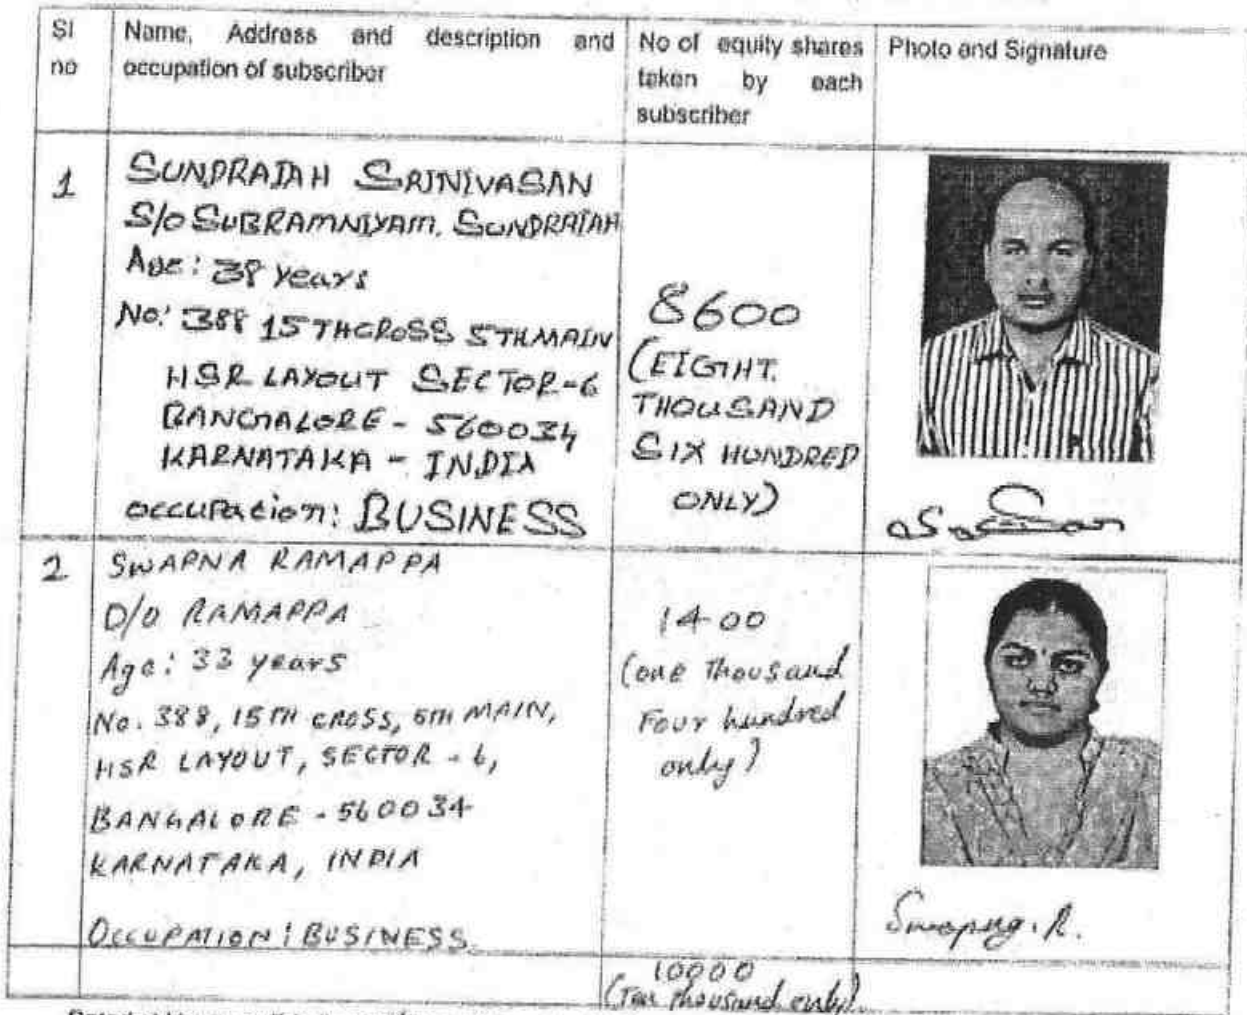 Sl no
Name, Address and description and occupation of subscriber
No of equity shares taken by each subscriber
Photo and Signature
1
SUNDRAIAH SRINIVASAN
S/O SUBRAMNIYAM. SUNDRAIAH
Age: 38 years
No: 388 15THCROSS 5THMAIN
HSR LAYOUT SECTOR-6
BANGALORE - 560034
KARNATAKA - INDIA
occupation: BUSINESS
8600
(EIGHT
THOUSAND
SIX HUNDRED
ONLY)
2
SWAPNA RAMAPPA
D/O RAMAPPA
Age: 33 years
No. 388, 15TH CROSS, 5TH MAIN,
HSR LAYOUT, SECTOR - 6,
BANGALORE - 560034
KARNATAKA, INDIA
OCCUPATION: BUSINESS.
1400
(one Thousand
Four hundred
only)
Swapna. R.
10000
(Ten thousand only).